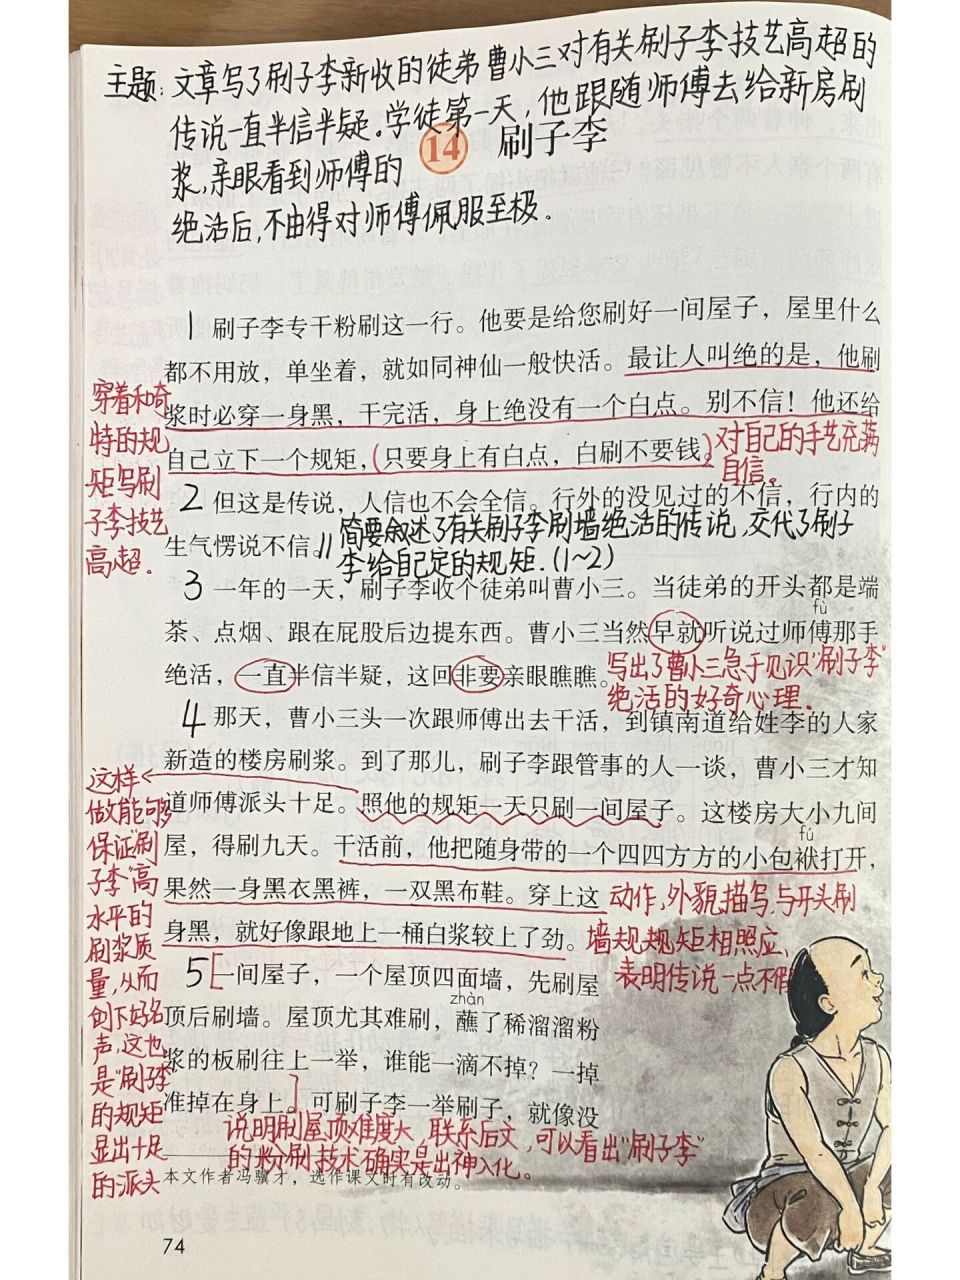 主题:文章写了刷子李新收的徒弟曹小三对有关刷子李技艺高超的
传说一直半信半疑。学徒第一天,他跟随师傅去给新房刷
浆,亲眼看到师傅的
绝活后,不由得对师傅佩服至极。
14 刷子李
1 刷子李专干粉刷这一行。他要是给您刷好一间屋子，屋里什么
都不用放，单坐着，就如同神仙一般快活。最让人叫绝的是，他刷
浆时必穿一身黑，干完活，身上绝没有一个白点。别不信！他还给
自己立下一个规矩，(只要身上有白点，白刷不要钱。)
对自己的手艺充满
自信。
穿着和奇
特的规
矩写刷
子李技艺
高超.
2 但这是传说，人信也不会全信。行外的没见过的不信，行内的
生气愣说不信。//
简要叙述了有关刷子李刷墙绝活的传说,交代了刷子
李给自己定的规矩.(1~2)
3 一年的一天，刷子李收个徒弟叫曹小三。当徒弟的开头都是端
fù
茶、点烟、跟在屁股后边提东西。曹小三当然早就听说过师傅那手
绝活，一直半信半疑，这回非要亲眼瞧瞧。
写出了曹小三急于见识"刷子李"
绝活的好奇心理.
4 那天，曹小三头一次跟师傅出去干活，到镇南道给姓李的人家
新造的楼房刷浆。到了那儿，刷子李跟管事的人一谈，曹小三才知
道师傅派头十足。照他的规矩一天只刷一间屋子。这楼房大小九间
fú
屋，得刷九天。干活前，他把随身带的一个四四方方的小包袱打开，
果然一身黑衣黑裤，一双黑布鞋。穿上这
身黑，就好像跟地上一桶白浆较上了劲。
动作,外貌描写,与开头刷
墙规规矩相照应,
表明传说一点不假
这样
做能够
保证"刷
子李"高
水平的
刷浆质
量,从而
创下好名
声,这也
是"刷子李"
的规矩
显出十足
的派头
5 [一间屋子，一个屋顶四面墙，先刷屋
zhàn
顶后刷墙。屋顶尤其难刷，蘸了稀溜溜粉
浆的板刷往上一举，谁能一滴不掉？一掉
准掉在身上。]可刷子李一举刷子，就像没
说明刷屋顶难度大,联系后文,可以看出"刷子李"
的粉刷技术确实是出神入化.
本文作者冯骥才，选作课文时有改动。
74